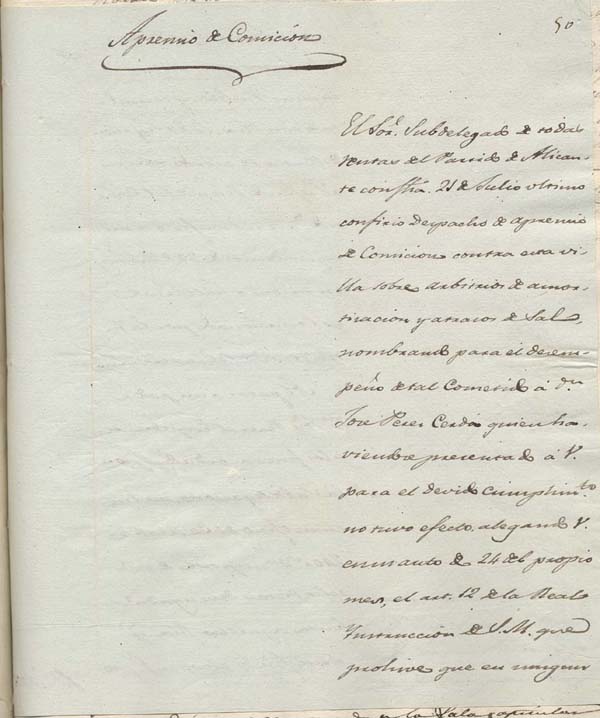 50
Apremio de Comición
El Sor. Subdelegado de todas
rentas del Partido de Alican-
te con fha. 21 de Julio ultimo
confirio despacho de apremio
de Comicion contra esta vi-
lla sobre arbitrios de amor-
tización y atrasos de Sal,
nombrando para el desem-
peño de tal Cometido á dn.
José Peres Cerdá quien ha-
viendose presentado á V.
para el devido cumplimto.
no tuvo efecto alegando V.
en un auto de 24 del propio
mes, el art. 12 de la Real
Ynstruccion de S. M. que
prohive que en ningun
la Sala capitular